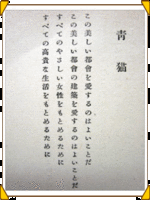 青猫
この美しい都會を愛するのはよいことだ
この美しい都會の建築を愛するのはよいことだ
すべてのやさしい女性をもとめるために
すべての高貴な生活をもとめるために